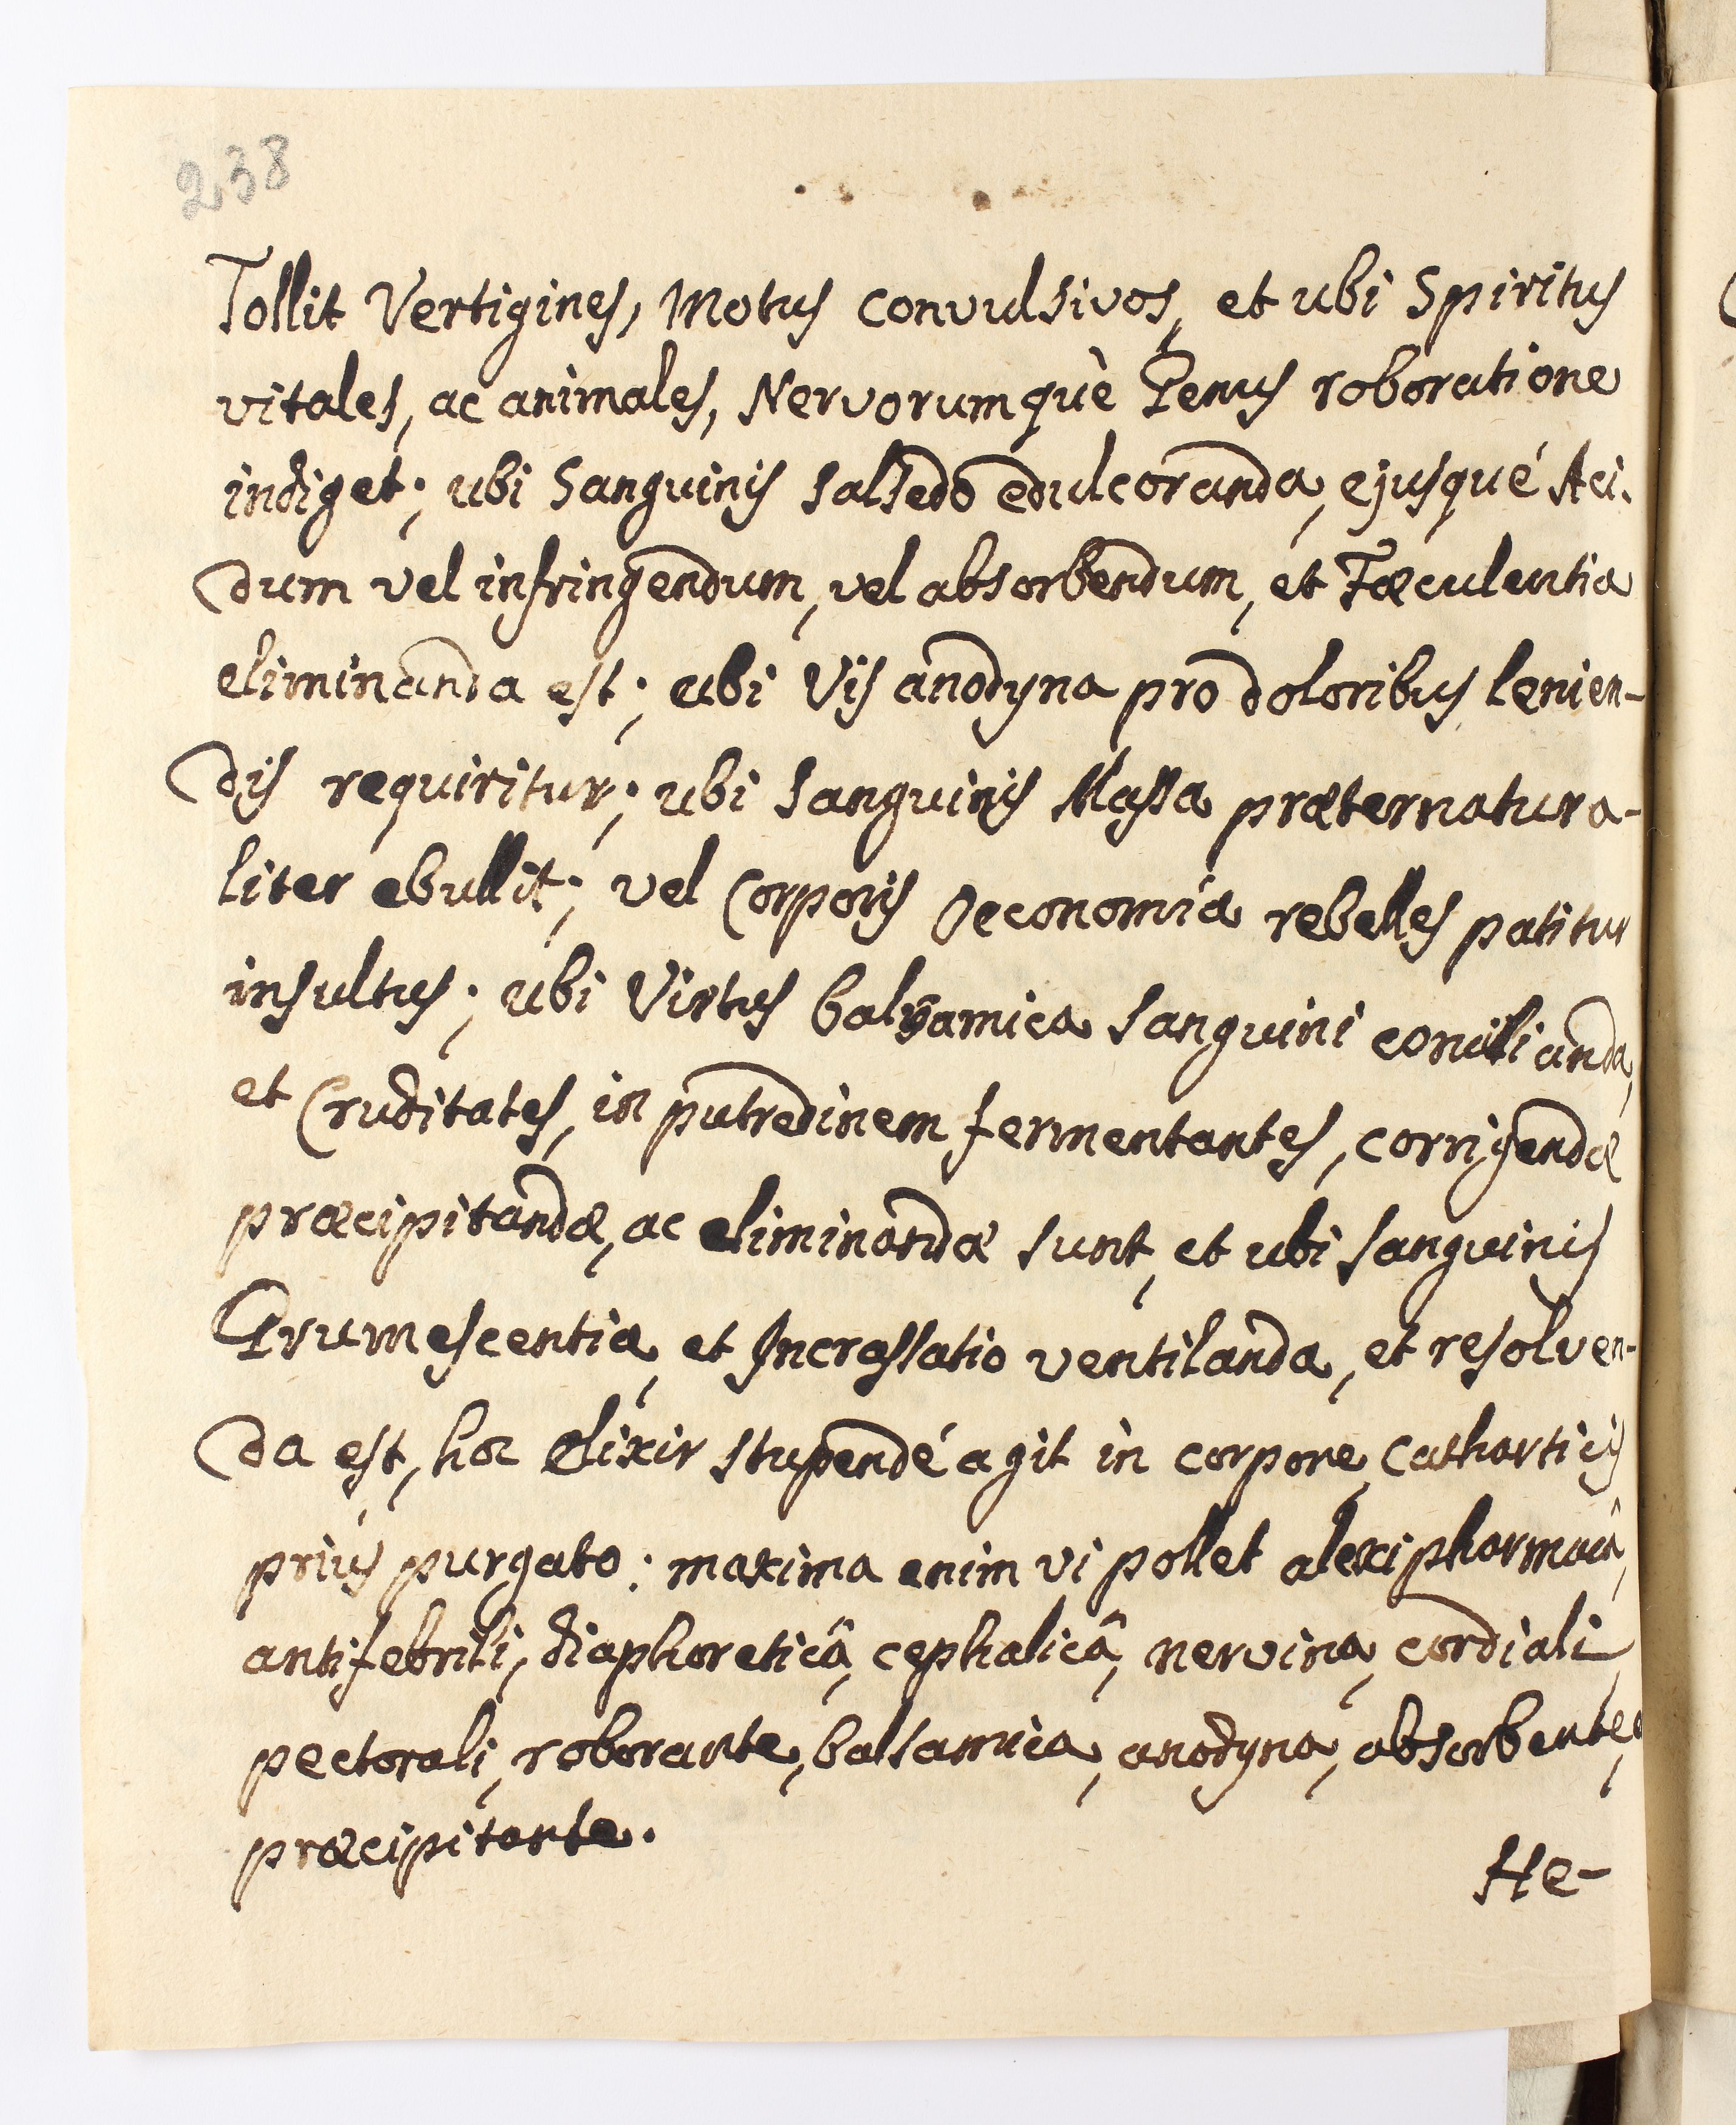 238
Tollit Vertigines, Motus convulsivos, et ubi Spiritus
vitales, ac animales, Nervorumquè Genus roboratione
indiget; ubi Sanguinis salsedo edulcoranda, ejusqué Aci-
dum vel infringendum, vel absorbendum, et Fæculentia
eliminanda est; ubi Vis anodyna pro doloribus lenien-
dis requiritur; ubi Sanguinis Massa præternatura-
liter ebullit; vel Corporis Oeconomia rebelles patitur
insultus; ubi Virtus balsamica Sanguini concilianda,
et Cruditates, in putredinem fermentantes, corrigendæ
præcipitandæ, ac eliminandæ sunt, et ubi Sanguinis
Grumescentia, et Incrassatio ventilanda, et resolven-
da est, hoc Elixir stupendé agit in corpore, catharticis
prius purgato: maxima enim vi pollet alexipharmacâ,
antifebrili, diaphoreticâ, cephalicâ, nervina, cordiali,
pectorali, roborante, balsamica, anodyna, absorbente,
præcipitante.
He-